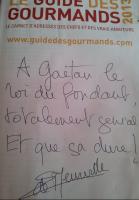 LE GUIDE DES
GOURMANDS 2013
LE CARNET D'ADRESSES DES CHEFS ET DES VRAIS AMATEURS
www.guidedesgourmands.com
A Gaetan le
roi du fondant
totalement genial
Et que sa dure!